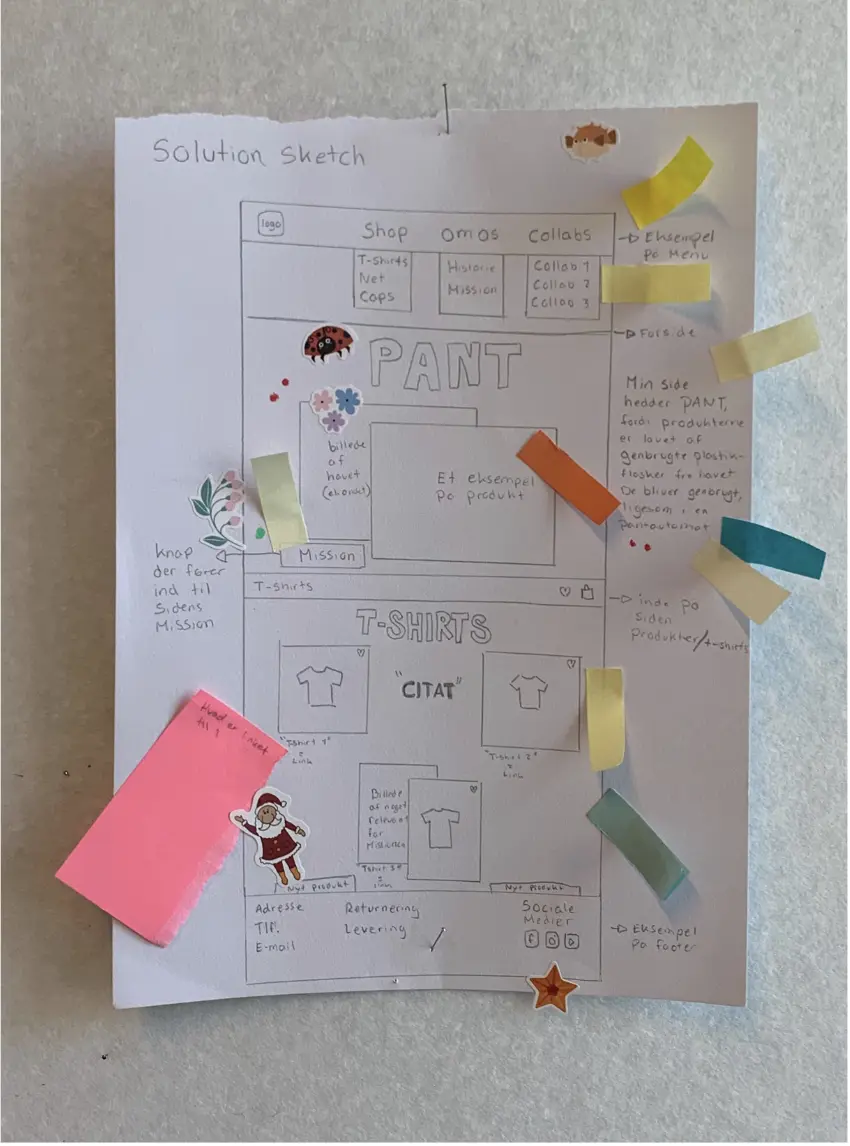 Solution Sketch
logo
Shop
Om os
Collabs
T-shirts
Net
Caps
Historie
Mission
Collab 1
Collab 2
Collab 3
Eksempel
på Menu
Forside
PANT
billede
af
havet
Et eksempel
på produkt
Mission
Min side
hedder PANT,
fordi produkterne
er lavet af
genbrugte plastik-
flasker fra havet
De bliver genbrugt,
ligesom i en
pantautomat
knap
der fører
ind til
Sidens
Mission
T-shirts
inde på
siden
produkter/t-shirts
T-SHIRTS
"CITAT"
"T-shirt 1"
=
Link
"T-shirt 2"
=
Link
Billede
af noget
relevant
for
Missionen
Tshirt 3"
=
Link
Hvad er
til ?
Nyt Produkt
Nyt Produkt
Adresse
Tlf.
E-mail
Returnering
Levering
Sociale
Medier
f
Eksempel
på footer